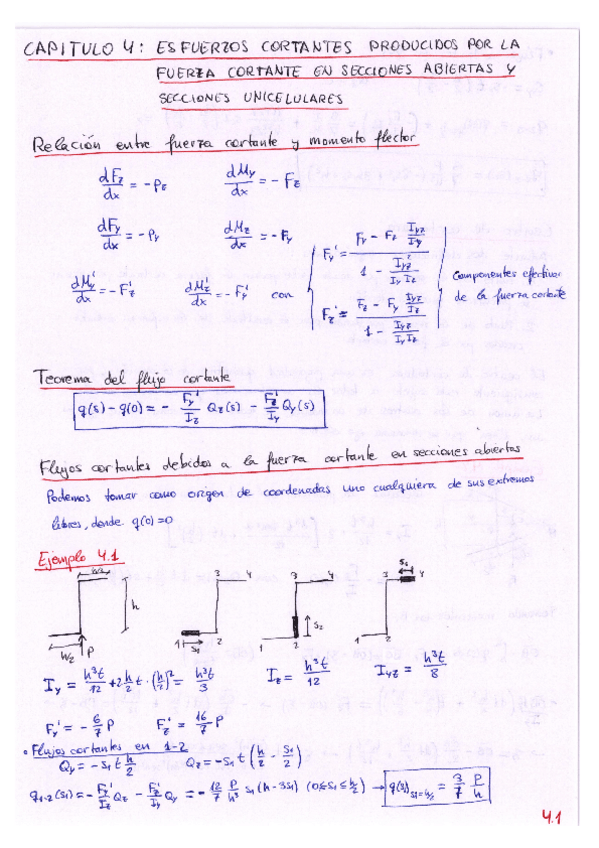 CAPITULO 4: ESFUERZOS CORTANTES PRODUCIDOS POR LA
FUERZA CORTANTE EN SECCIONES ABIERTAS Y
SECCIONES UNICELULARES
Relación entre fuerza cortante y momento flector
dFz/dx = -pz    dMy/dx = -Fz
dFy/dx = -py    dMz/dx = -Fy
dMy'/dx = -Fz'    dMz'/dx = -Fy'    con
Fy' = (Fy - Fz Iyz/Iy) / (1 - Iyz²/(Iy Iz))
Fz' = (Fz - Fy Iyz/Iz) / (1 - Iyz²/(Iy Iz))
Componentes efectivas
de la fuerza cortante
Teorema del flujo cortante
q(s) - q(0) = - Fy'/Iz Qz(s) - Fz'/Iy Qy(s)
Flujos cortantes debidos a la fuerza cortante en secciones abiertas
Podemos tomar como origen de coordenadas uno cualquiera de sus extremos
libres, donde q(0)=0
Ejemplo 4.1
h
P
1 2 3 4 S1
1 2 3 4 S2
1 2 3 4 S3
Iy = h³t/12 + 2 h/2 t · (h/2)² = h³t/3    Iz = h³t/12    Iyz = h³t/8
Fy' = - 6/7 P    Fz' = 16/7 P
• Flujos cortantes en 1-2
Qy = -s1 t h/2    Qz = -s1 t (h/2 - s1/2)
q1-2(s1) = - Fy'/Iz Qz - Fz'/Iy Qy = - 12/7 P/h³ s1 (h-3s1) (0≤s1≤h/2) → q(s)s1=h/2 = 3/7 P/h
4.1